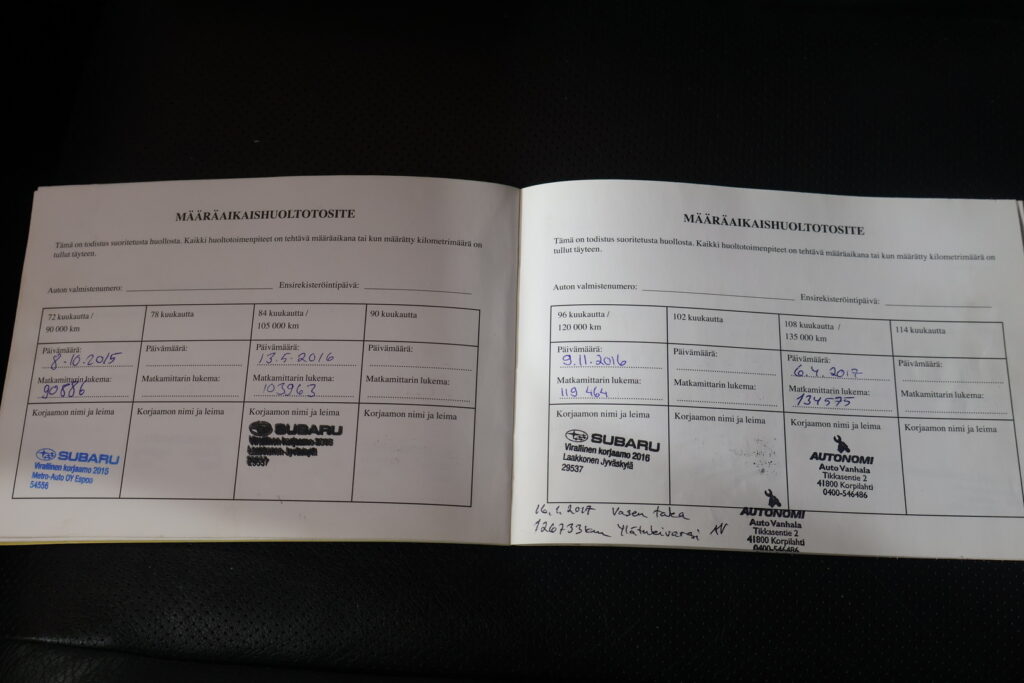 MÄÄRÄAIKAISHUOLTOTOSITE
Tämä on todistus suoritetusta huollosta. Kaikki huoltotoimenpiteet on tehtävä määräaikana tai kun määrätty kilometrimäärä on
tullut täyteen.
Auton valmistenumero: Ensirekisteröintipäivä:
72 kuukautta /
90 000 km
Päivämäärä:
8.10.2015
Matkamittarin lukema:
90886
Korjaamon nimi ja leima
SUBARU
Virallinen korjaamo 2015
Metro-Auto OY Espoo
54556
78 kuukautta
Päivämäärä:
Matkamittarin lukema:
Korjaamon nimi ja leima
84 kuukautta /
105 000 km
Päivämäärä:
13.5.2016
Matkamittarin lukema:
103963
Korjaamon nimi ja leima
SUBARU
Virallinen korjaamo 2016
Laakkonen Jyväskylä
29537
90 kuukautta
Päivämäärä:
Matkamittarin lukema:
Korjaamon nimi ja leima
MÄÄRÄAIKAISHUOLTOTOSITE
Tämä on todistus suoritetusta huollosta. Kaikki huoltotoimenpiteet on tehtävä määräaikana tai kun määrätty kilometrimäärä on
tullut täyteen.
Auton valmistenumero: Ensirekisteröintipäivä:
96 kuukautta /
120 000 km
Päivämäärä:
9.11.2016
Matkamittarin lukema:
119 464
Korjaamon nimi ja leima
SUBARU
Virallinen korjaamo 2016
Laakkonen Jyväskylä
29537
102 kuukautta
Päivämäärä:
Matkamittarin lukema:
Korjaamon nimi ja leima
108 kuukautta /
135 000 km
Päivämäärä:
6.4.2017
Matkamittarin lukema:
134575
Korjaamon nimi ja leima
AUTONOMI
Auto Vanhala
Tikkasentie 2
41800 Korpilahti
0400-546486
114 kuukautta
Päivämäärä:
Matkamittarin lukema:
Korjaamon nimi ja leima
16.1.2017 Vasen taka
126733km Ylätukivarsi
AUTONOMI
Auto Vanhala
Tikkasentie 2
41800 Korpilahti
0400-546486